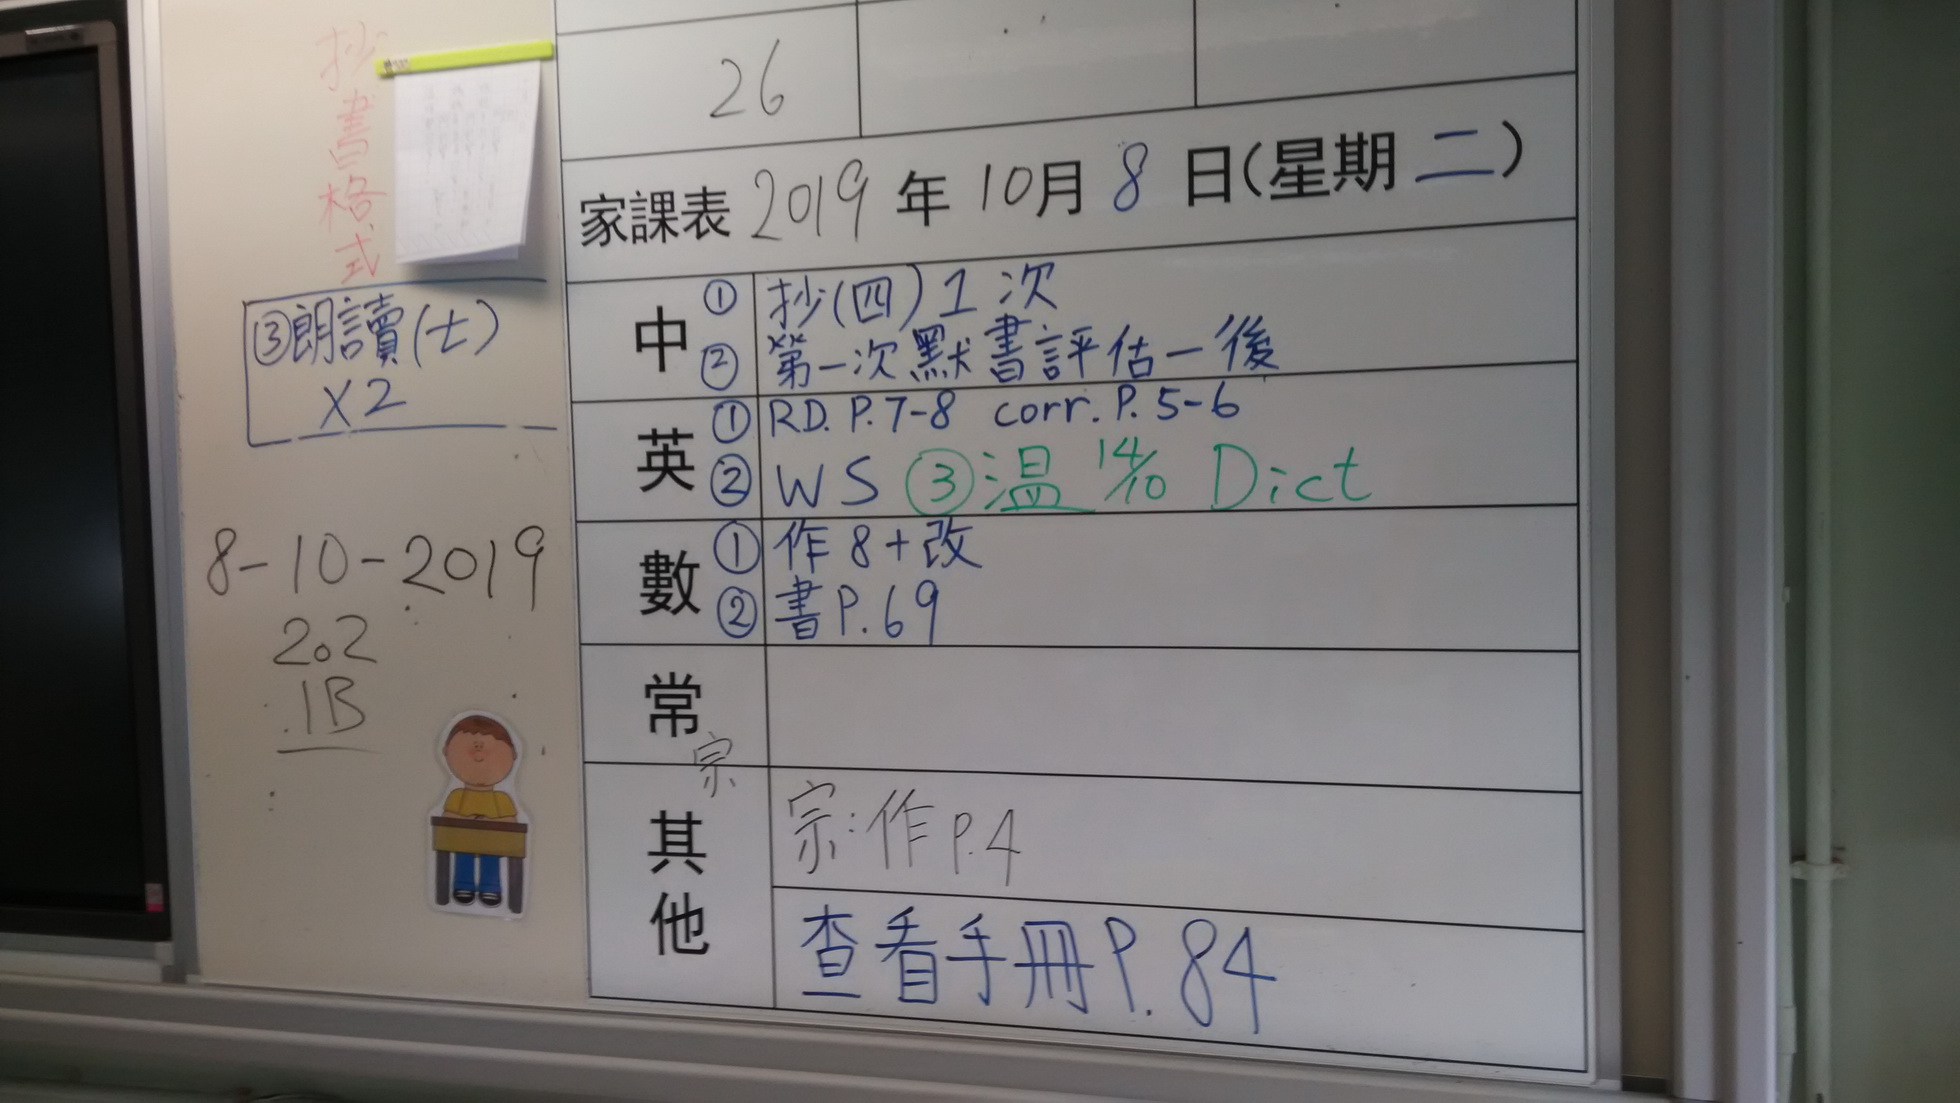 抄書格式
③朗讀(士)
X2
8-10-2019
2.2
1B
26
家課表 2019 年 10月 8 日(星期 二)
中 ① 抄(四)1次
② 第一次默書評估一後
英 ① RD. P.7-8 corr. P.5-6
② WS ③溫 14/10 Dict
數 ① 作8+改
② 書P.69
常
宗
其他
宗:作P.4
查看手冊P.84